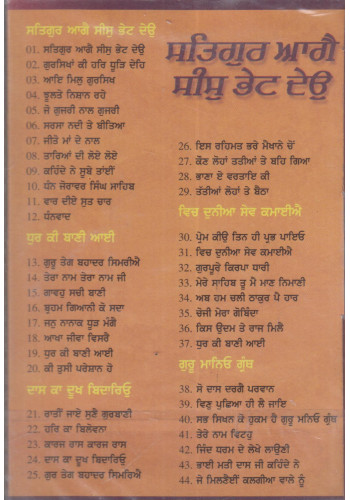 ਸਤਿਗੁਰ ਆਗੈ ਸੀਸੁ ਭੇਟ ਦੇਉ
01. ਸਤਿਗੁਰ ਆਗੈ ਸੀਸੁ ਭੇਟ ਦੇਉ
02. ਗੁਰਸਿਖਾਂ ਕੀ ਹਰਿ ਧੂੜਿ ਦੇਹਿ
03. ਆਇ ਮਿਲੁ ਗੁਰਸਿਖ
04. ਝੂਲਤੇ ਨਿਸ਼ਾਨ ਰਹੇ
05. ਜੇ ਗੁਜਰੀ ਨਾਲ ਗੁਜਰੀ
06. ਸਰਸਾ ਨਦੀ ਤੇ ਬੀਤਿਆ
07. ਜੀਤੋ ਮਾਂ ਦੇ ਨਾਲ
08. ਤਾਰਿਆਂ ਦੀ ਲੋਏ ਲੋਏ
09. ਕਹਿੰਦੇ ਨੇ ਸੂਬੇ ਤਾਂਈਂ
10. ਧੰਨ ਜੋਰਾਵਰ ਸਿੰਘ ਸਾਹਿਬ
11. ਵਾਰ ਦੀਏ ਸੁਤ ਚਾਰ
12. ਧੰਨਵਾਦ
ਧੁਰ ਕੀ ਬਾਣੀ ਆਈ
13. ਗੁਰੂ ਤੇਗ ਬਹਾਦਰ ਸਿਮਰੀਐ
14. ਤੇਰਾ ਨਾਮ ਤੇਰਾ ਨਾਮ ਜੀ
15. ਗਾਵਹੁ ਸਚੀ ਬਾਣੀ
16. ਬ੍ਰਹਮ ਗਿਆਨੀ ਕੋ ਸਦਾ
17. ਜਨੁ ਨਾਨਕ ਧੂੜ ਮੰਗੈ
18. ਆਖਾ ਜੀਵਾ ਵਿਸਰੈ
19. ਧੁਰ ਕੀ ਬਾਣੀ ਆਈ
20. ਕੀ ਤੁਸੀ ਪਰੇਸ਼ਾਨ ਹੋ
ਦਾਸ ਕਾ ਦੂਖ ਬਿਦਾਰਿਓ
21. ਰਾਤੀਂ ਜਾਏ ਸੁਣੈ ਗੁਰਬਾਣੀ
22. ਹਰਿ ਕਾ ਬਿਲੋਵਨਾ
23. ਕਾਰਜ ਰਾਸ ਕਾਰਜ ਰਾਸ
24. ਦਾਸ ਕਾ ਦੂਖ ਬਿਦਾਰਿਓ
25. ਗੁਰ ਤੇਗ ਬਹਾਦਰ ਸਿਮਰਿਐ
ਸਤਿਗੁਰ ਆਗੈ
ਸੀਸੁ ਭੇਟ ਦੇਉ
26. ਇਸ ਰਹਿਮਤ ਭਰੇ ਮੈਖਾਨੇ ਚੋਂ
27. ਕੌਣ ਲੋਹਾਂ ਤਤੀਆਂ ਤੇ ਬਹਿ ਗਿਆ
28. ਭਾਣਾ ਏ ਵਰਤਾਇ ਕੀ
29. ਤੱਤੀਆਂ ਲੋਹਾਂ ਤੇ ਬੈਠਾ
ਵਿਚ ਦੁਨੀਆ ਸੇਵ ਕਮਾਈਐ
30. ਪ੍ਰੇਮ ਕੀਉ ਤਿਨ ਹੀ ਪ੍ਰਭ ਪਾਇਓ
31. ਵਿਚ ਦੁਨੀਆ ਸੇਵ ਕਮਾਈਐ
32. ਗੁਰਪੂਰੇ ਕਿਰਪਾ ਧਾਰੀ
33. ਮੇਰੇ ਸਾਹਿਬ ਤੂ ਮੈ ਮਾਣ ਨਿਮਾਣੀ
34. ਅਬ ਹਮ ਚਲੀ ਠਾਕੁਰ ਪੈ ਹਾਰ
35. ਚੋਜੀ ਮੇਰਾ ਗੋਬਿੰਦਾ
36. ਕਿਸ ਉਦਮ ਤੇ ਰਾਜ ਮਿਲੈ
37. ਧੁਰ ਕੀ ਬਾਣੀ ਆਈ
ਗੁਰੂ ਮਾਨਿਓ ਗ੍ਰੰਥ
38. ਸੋ ਦਾਸ ਦਰਗੈ ਪਰਵਾਨ
39. ਵਿਣੁ ਪੁਛਿਆ ਹੀ ਲੈ ਜਾਇ
40. ਸਭ ਸਿਖਨ ਕੋ ਹੁਕਮ ਹੈ ਗੁਰੂ ਮਨਿਓ ਗ੍ਰੰਥ
41. ਤੇਰੇ ਨਾਮ ਵਿਟਹੁ
42. ਜਿੰਦ ਧਰਮ ਦੇ ਲੇਖੇ ਲਾਉਣੀ
43. ਭਾਈ ਮਤੀ ਦਾਸ ਜੀ ਕਹਿੰਦੇ ਨੇ
44. ਜੇ ਮਿਲਣੋਈਂ ਕਲਗੀਆ ਵਾਲੇ ਨੂੰ